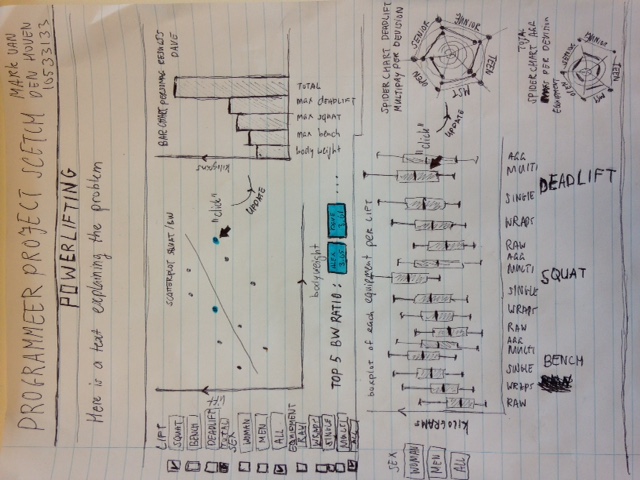 PROGRAMMEER PROJECT SCETCH
MARK VAN
DEN HOVEN
10533133
POWERLIFTING
Here is a text explaining the problem
LIFT
SQUAT
BENCH
DEADLIFT
TOTAL
SEX
WOMAN
MEN
ALL
EQUIPMENT
RAW
WRAPS
SINGLE
MULTI
ALL
SCATTERPLOT SQUAT/BW
LIFT
bodyweight
"click"
UPDATE
BAR CHART PERSONAL RESULTS
DAVE
kilograms
body weight
max bench
max squat
max deadlift
TOTAL
TOP 5 BW RATIO: ALEX DAVE ...
boxplot of each equipment per LIFT
SEX
WOMAN
MEN
ALL
KILOGRAMS
"click"
UPDATE
RAW
WRAPS
SINGLE
MULTI
AGG
RAW
WRAPS
SINGLE
MULTI
AGG
RAW
WRAPS
SINGLE
MULTI
AGG
BENCH
SQUAT
DEADLIFT
SPIDER CHART DEADLIFT
MULTIPLY PER DEVISION
OPEN
SENIOR
TEEN
TOTAL
SPIDER CHART AGG
PER DEVISION
EQUIPMENT
OPEN
SENIOR
TEEN